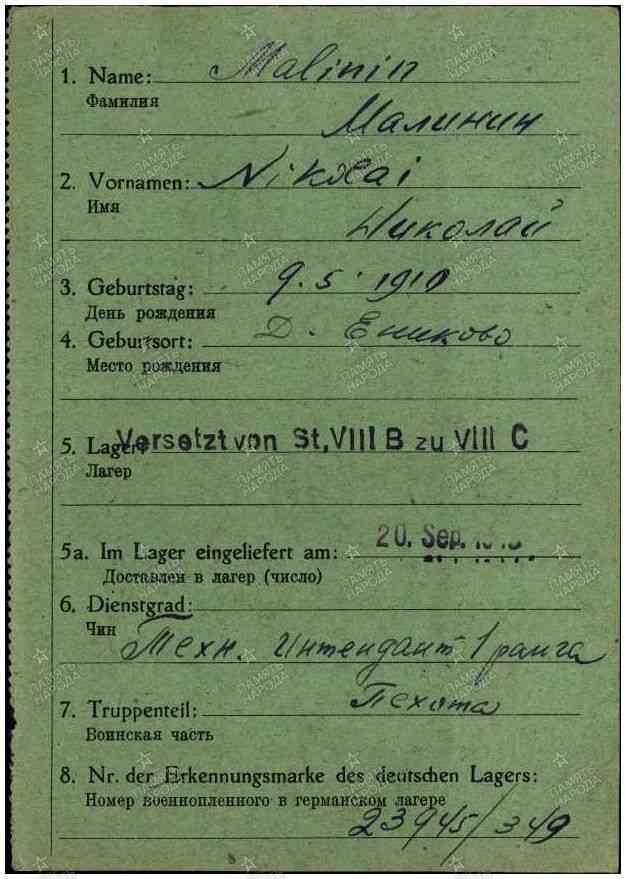 1. Name: Malinin
Фамилия
Малинин
2. Vornamen: Nikolai
Имя
Николай
3. Geburtstag: 9.5.1910
День рождения
4. Geburtsort: Д. Ениково
Место рождения
5. Lager: Versetzt von St, VIII B zu VIII C
Лагер
5a. Im Lager eingeliefert am: 20. Sep.
Доставлен в лагер (число)
6. Dienstgrad:
Чин
Техн. Интендант 1 ранга
7. Truppenteil: Пехота
Воинская часть
8. Nr. der Erkennungsmarke des deutschen Lagers:
Номер военнопленного в германском лагере
23945/349
ПАМЯТЬ
НАРОДА